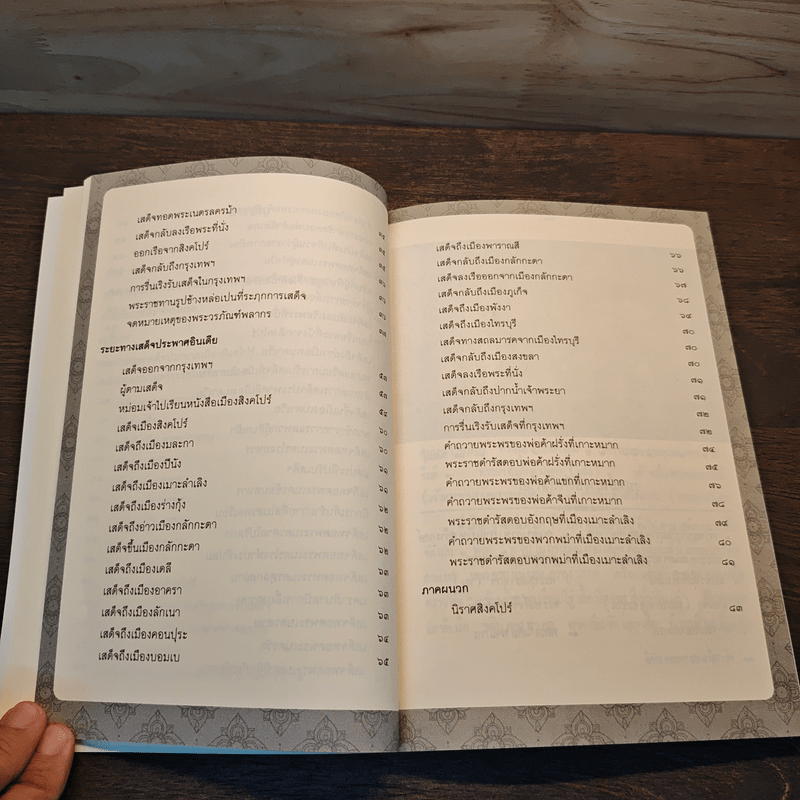 เสด็จทอดพระเนตรลครม้า
เสด็จกลับลงเรือพระที่นั่ง ๑๕
ออกเรือจากสิงคโปร์ ๑๕
เสด็จกลับถึงกรุงเทพฯ ๑๕
การรื่นเริงรับเสด็จในกรุงเทพฯ ๑๖
พระราชทานรูปช้างหล่อเปนที่ระฦกการเสด็จ ๑๖
จดหมายเหตุของพระวรภัณฑ์พลากร
ระยะทางเสด็จประพาศอินเดีย
เสด็จออกจากกรุงเทพฯ ๕๓
ผู้ตามเสด็จ ๕๓
หม่อมเจ้าไปเรียนหนังสือเมืองสิงคโปร์ ๕๔
เสด็จเมืองสิงคโปร์ ๖๐
เสด็จถึงเมืองมละกา ๖๐
เสด็จถึงเมืองปีนัง ๖๑
เสด็จถึงเมืองเมาะลำเลิง ๖๑
เสด็จถึงเมืองร่างกุ้ง ๖๒
เสด็จถึงอ่าวเมืองกลักกะตา ๖๒
เสด็จขึ้นเมืองกลักกะตา ๖๒
เสด็จถึงเมืองเดลี ๖๓
เสด็จถึงเมืองอาครา ๖๓
เสด็จถึงเมืองลักเนา ๖๓
เสด็จถึงเมืองคอนปุระ ๖๔
เสด็จถึงเมืองบอมเบ ๖๕
เสด็จถึงเมืองพาราณสี ๖๖
เสด็จกลับถึงเมืองกลักกะตา ๖๖
เสด็จลงเรือออกจากเมืองกลักกะตา ๖๗
เสด็จกลับถึงเมืองภูเก็จ ๖๘
เสด็จถึงเมืองพังงา ๖๙
เสด็จถึงเมืองไทรบุรี ๗๐
เสด็จทางสถลมารคจากเมืองไทรบุรี ๗๐
เสด็จกลับถึงเมืองสงขลา ๗๐
เสด็จลงเรือพระที่นั่ง ๗๑
เสด็จกลับถึงปากน้ำเจ้าพระยา ๗๑
เสด็จกลับถึงกรุงเทพฯ ๗๒
การรื่นเริงรับเสด็จที่กรุงเทพฯ ๗๒
คำถวายพระพรของพ่อค้าฝรั่งที่เกาะหมาก ๗๔
พระราชดำรัสตอบพ่อค้าฝรั่งที่เกาะหมาก ๗๕
คำถวายพระพรของพ่อค้าแขกที่เกาะหมาก ๗๖
คำถวายพระพรของพ่อค้าจีนที่เกาะหมาก ๗๘
พระราชดำรัสตอบอังกฤษที่เมืองเมาะลำเลิง ๗๙
คำถวายพระพรของพวกพม่าที่เมืองเมาะลำเลิง ๘๐
พระราชดำรัสตอบพวกพม่าที่เมืองเมาะลำเลิง ๘๑
ภาคผนวก
นิราศสิงคโปร์ ๘๓